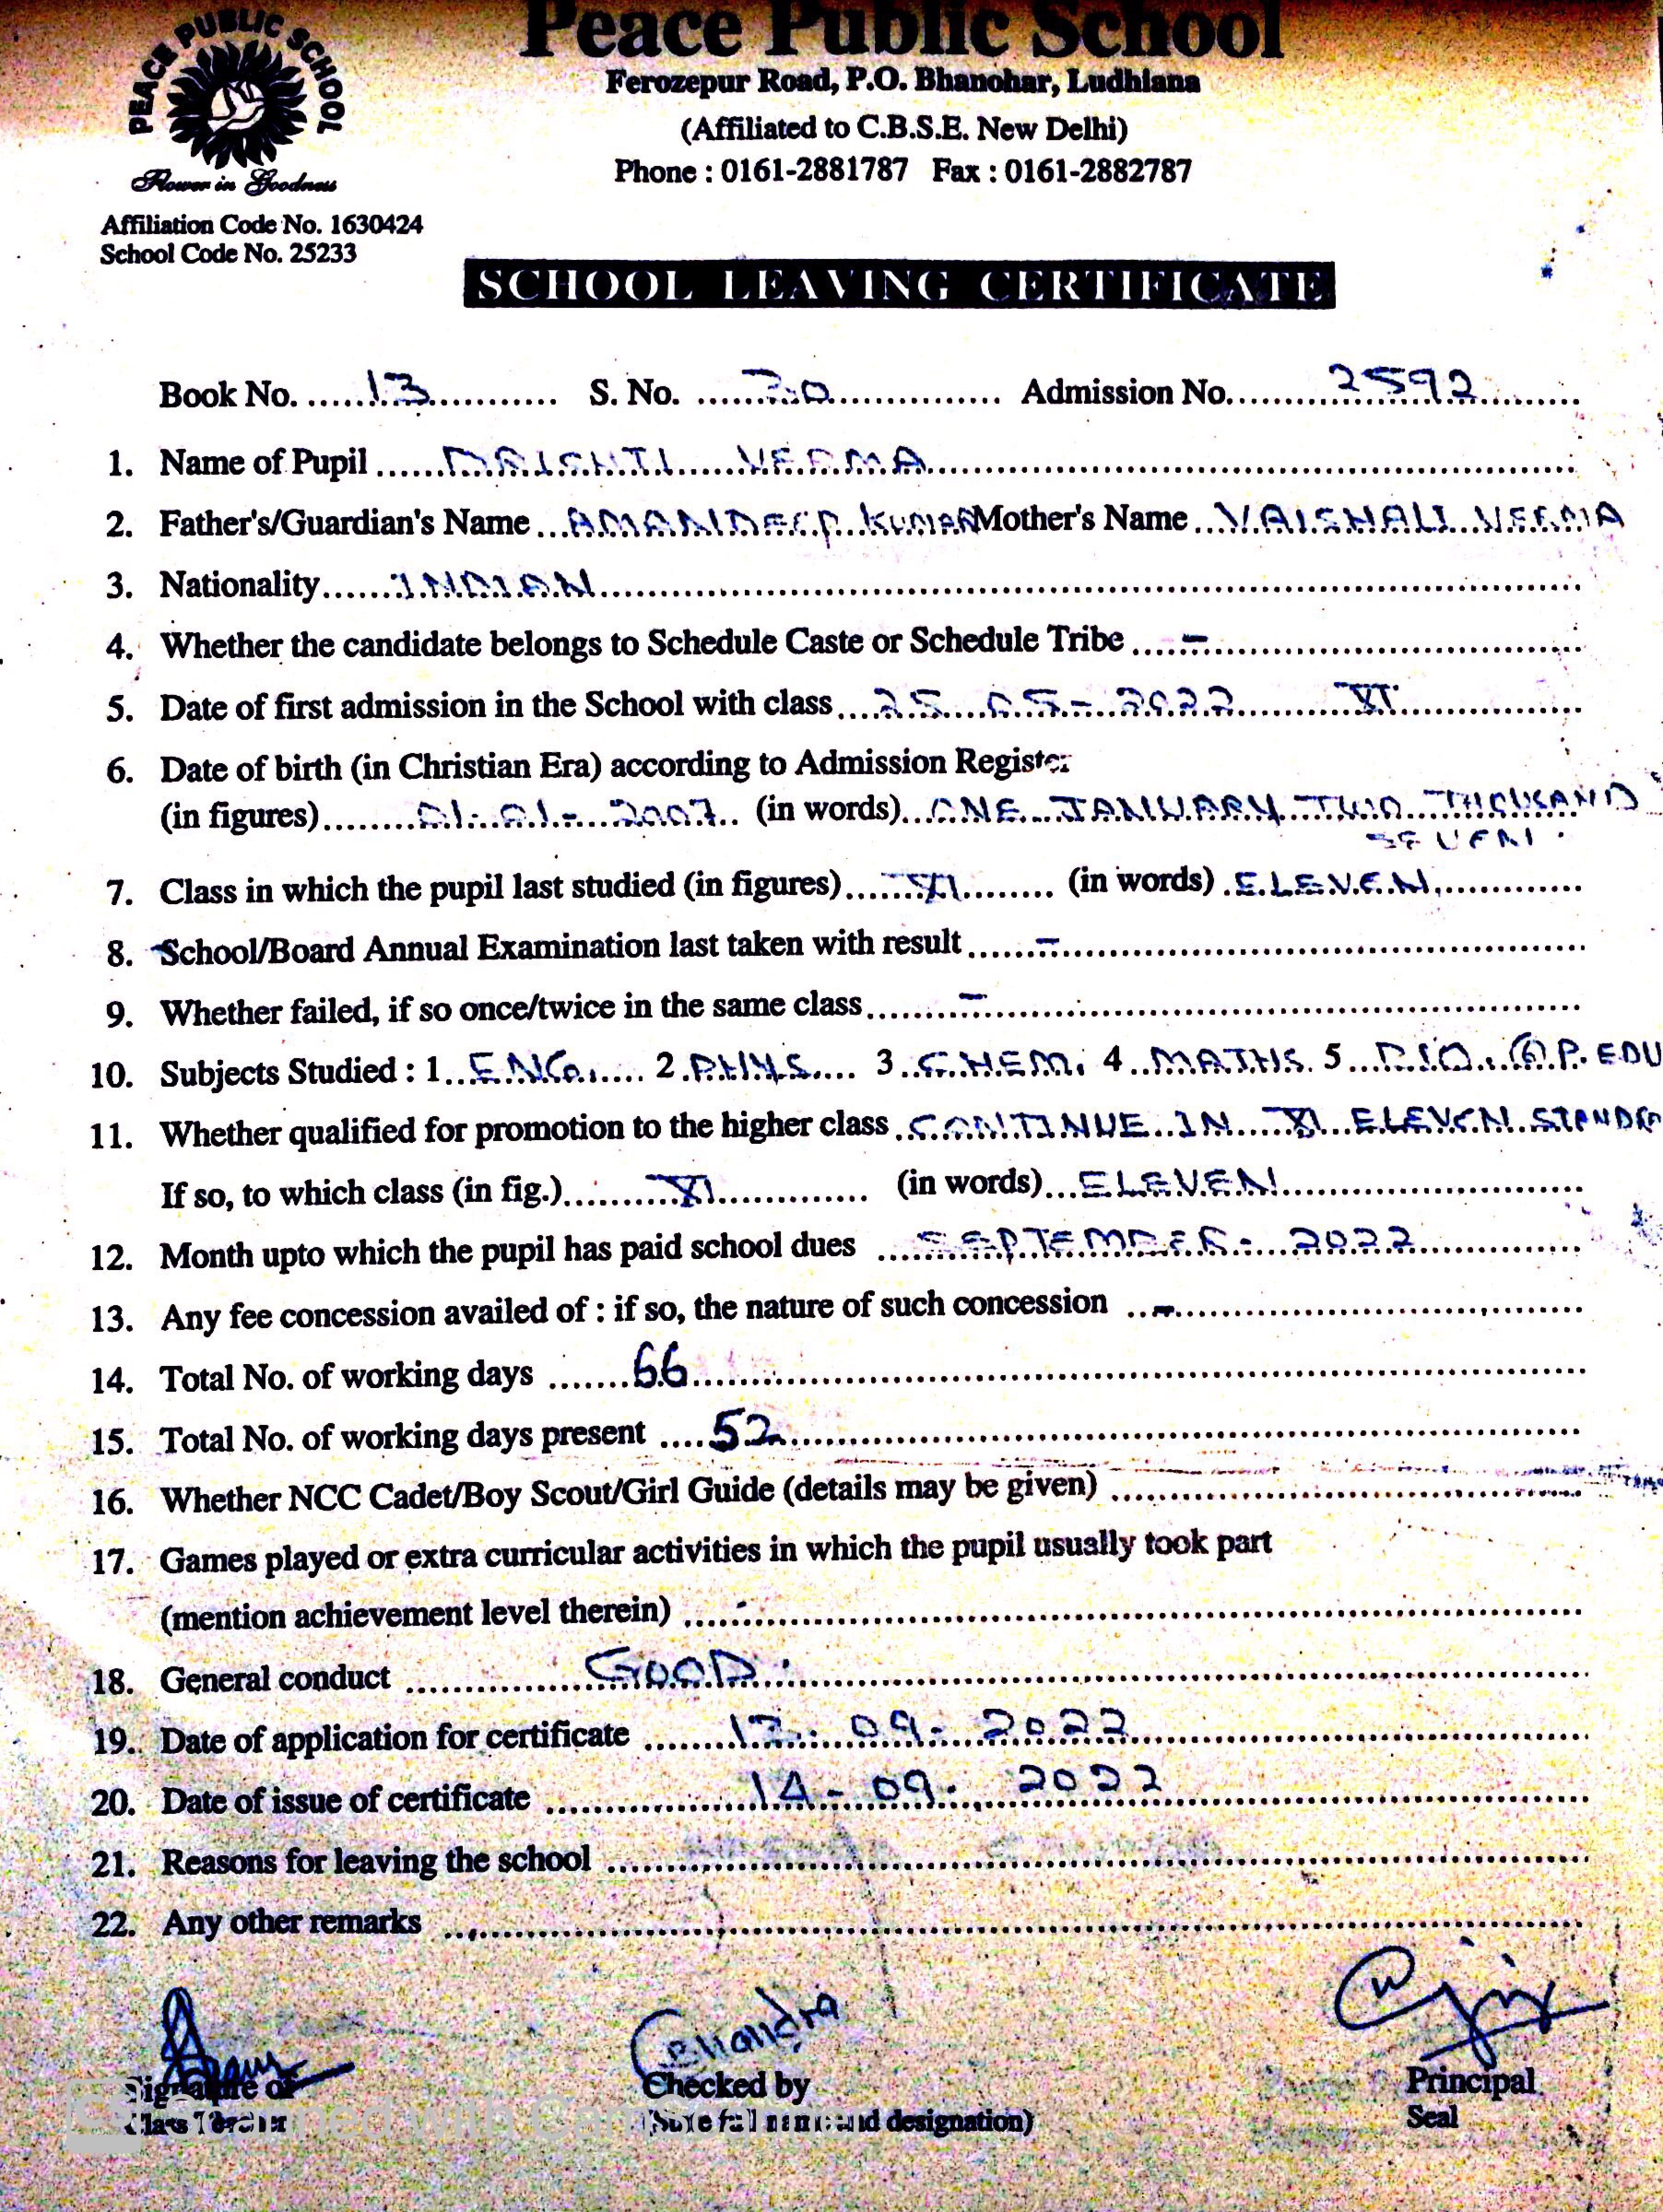 PEACE PUBLIC SCHOOL
Peace Public School
Ferozepur Road, P.O. Bhanohar, Ludhiana
(Affiliated to C.B.S.E. New Delhi)
Phone : 0161-2881787 Fax : 0161-2882787
Flower in Goodness
Affiliation Code No. 1630424
School Code No. 25233
SCHOOL LEAVING CERTIFICATE
Book No. 13 S. No. 30 Admission No. 2592
1. Name of Pupil DRISHTI VERMA
2. Father's/Guardian's Name AMANDEEP KUMAR Mother's Name VAISHALI VERMA
3. Nationality INDIAN
4. Whether the candidate belongs to Schedule Caste or Schedule Tribe -
5. Date of first admission in the School with class 25-05-2022 XI
6. Date of birth (in Christian Era) according to Admission Register
(in figures) 01-01-2007 (in words) ONE JANUARY TWO THOUSAND
SEVEN
7. Class in which the pupil last studied (in figures) XI (in words) ELEVEN
8. School/Board Annual Examination last taken with result -
9. Whether failed, if so once/twice in the same class -
10. Subjects Studied : 1 ENG. 2 PHYS 3 CHEM. 4 MATHS 5 BIO. 6 P. EDU
11. Whether qualified for promotion to the higher class CONTINUE IN XI ELEVEN
If so, to which class (in fig.) XI (in words) ELEVEN
12. Month upto which the pupil has paid school dues SEPTEMBER - 2022
13. Any fee concession availed of : if so, the nature of such concession -
14. Total No. of working days 66
15. Total No. of working days present 52
16. Whether NCC Cadet/Boy Scout/Girl Guide (details may be given)
17. Games played or extra curricular activities in which the pupil usually took part
(mention achievement level therein) -
18. General conduct GOOD
19. Date of application for certificate 09-2022
20. Date of issue of certificate 14-09-2022
21. Reasons for leaving the school
22. Any other remarks
Signature of Checked by Principal
Class Teacher (State full name and designation) Seal